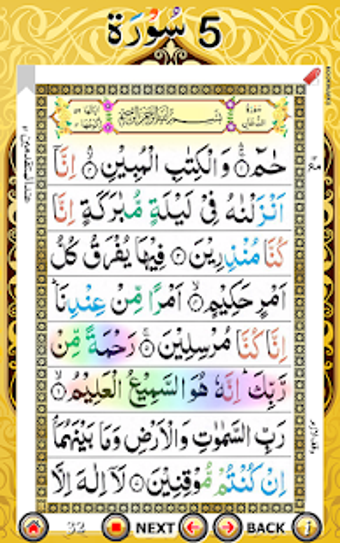 5 سُوْرَة
سورة الدخان
بِسْمِ اللهِ الرَّحْمٰنِ الرَّحِيْمِ
حٰمٓ ۚ وَالْكِتٰبِ الْمُبِيْنِ ۙ اِنَّاۤ
اَنْزَلْنٰهُ فِىْ لَيْلَةٍ مُّبٰرَكَةٍ اِنَّا
كُنَّا مُنْذِرِيْنَ فِيْهَا يُفْرَقُ كُلُّ
اَمْرٍ حَكِيْمٍ ۙ اَمْرًا مِّنْ عِنْدِنَا ؕ
اِنَّا كُنَّا مُرْسِلِيْنَ ۚ رَحْمَةً مِّنْ
رَّبِّكَ ؕ اِنَّهٗ هُوَ السَّمِيْعُ الْعَلِيْمُ ۙ
رَبِّ السَّمٰوٰتِ وَالْاَرْضِ وَمَا بَيْنَهُمَا ۘ
اِنْ كُنْتُمْ مُّوْقِنِيْنَ لَاۤ اِلٰهَ اِلَّا
32 NEXT BACK i